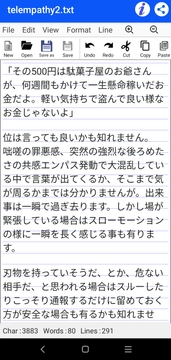 telempathy2.txt
File Edit View Format Line
New Open Save as Save Undo Redo Cut Copy Paste
「その500円は駄菓子屋のお爺さん
が、何週間もかけて一生懸命稼いだお
金だよ。軽い気持ちで盗んで良い様な
お金じゃないよ」
位は言っても良いかも知れません。
咄嗟の罪悪感、突然の強烈な後ろめた
さの共感エンパス発動で大混乱してい
る中で言葉が出てくるか、そこまで気
が周るかまでは分かりませんが。出来
事は一瞬で過ぎ去ります。しかし場が
緊張している場合はスローモーション
の様に一瞬を長く感じる事も有りま
す。
刃物を持っていそうだ、とか、危ない
相手だ、と思われる場合はスルーした
りこっそり通報するだけに留めておく
方が安全な場合も有るかも知れませ
Char :3883 Words :80 Lines :291